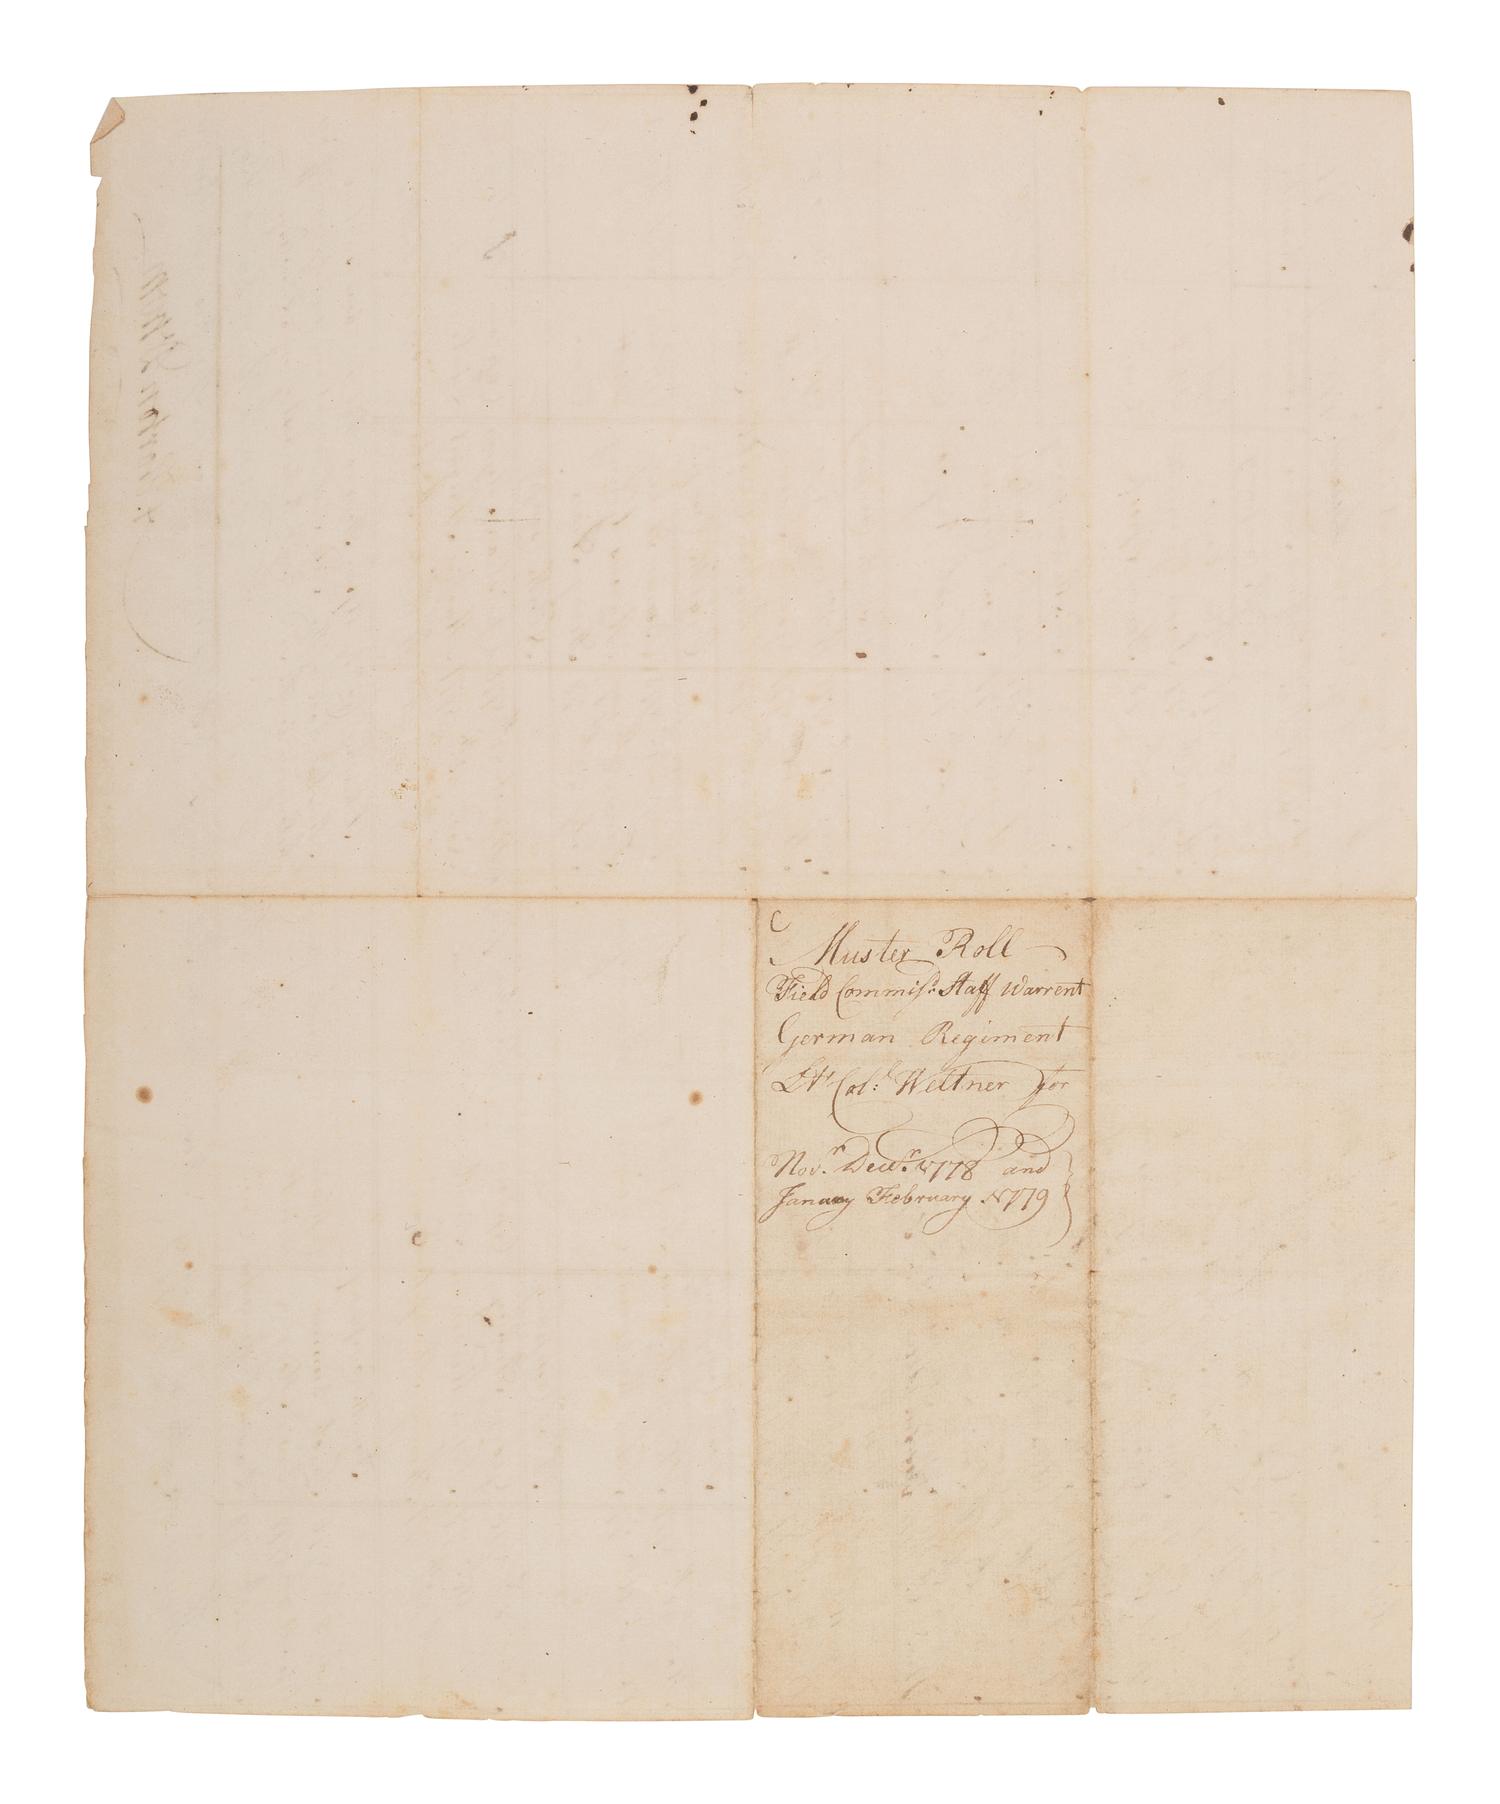 C
Muster Roll
Field Commiss.d Staff Warrent
German Regiment
Lt. Col.l Weltner for
Nov.r Dec.r 1778 and
Janury February 1779